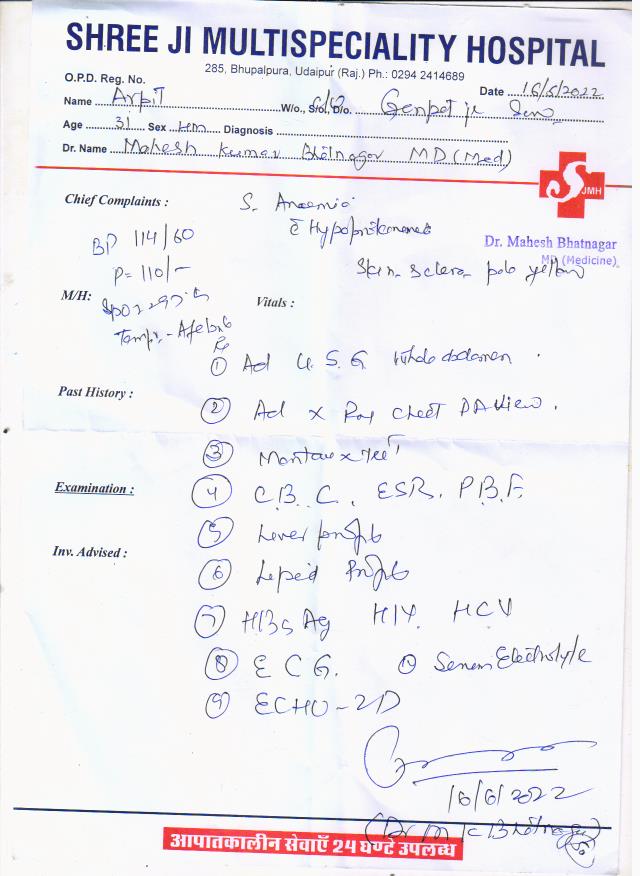 SHREE JI MULTISPECIALITY HOSPITAL
285, Bhupalpura, Udaipur (Raj.) Ph.: 0294 2414689
O.P.D. Reg. No. Date 16/5/2022
Name Arpit W/o, S/o, D/o. Genpat ji Sen
Age 31 Sex Diagnosis
Dr. Name Mahesh Kumar Bhatnagar MD (Med)
S JMH
Chief Complaints : S. Anaemia
BP 114/60
c̄ Hypoproteinemia
Dr. Mahesh Bhatnagar
MD (Medicine)
P= 110/-
Skin - Sclera - pale yellow
M/H: SpO2 - 97% Vitals :
Temp. - Afebrile
Rx
① Ad U.S.G whole abdomen.
Past History :
② Ad X Ray Chest PA View.
③ Mantoux Test
Examination :
④ C.B.C. ESR. P.B.F.
⑤ Liver profile
Inv. Advised :
⑥ Lepid Profile
⑦ HBsAg HIV HCV
⑧ E C G. ⑩ Serum Electrolyte
⑨ ECHO - 2D
16/6/2022
(Dr M K Bhatnagar)
आपातकालीन सेवाएँ 24 घण्टे उपलब्ध